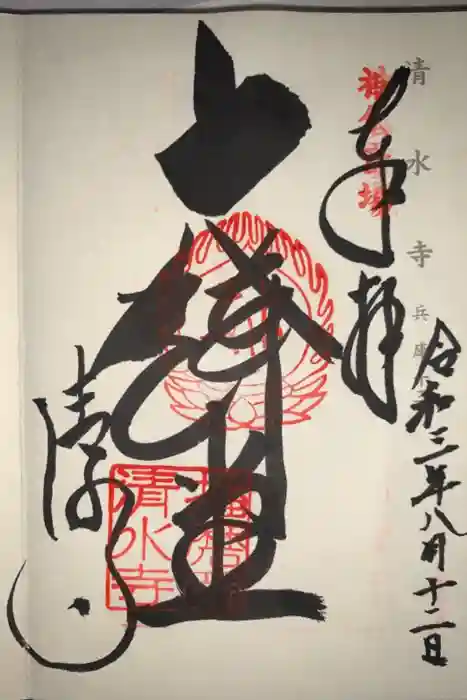 清水寺 兵庫
神仏霊場
奉拝
令和三年八月十二日
大講堂
清水寺
清水寺